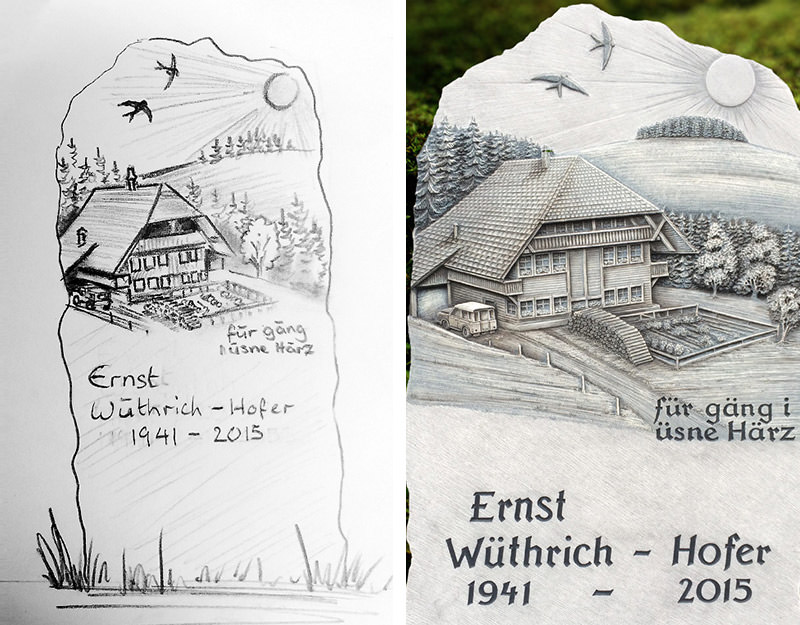 für gäng
i üsne Härz
Ernst
Wüthrich - Hofer
1941 - 2015
für gäng i
üsne Härz
Ernst
Wüthrich - Hofer
1941 - 2015